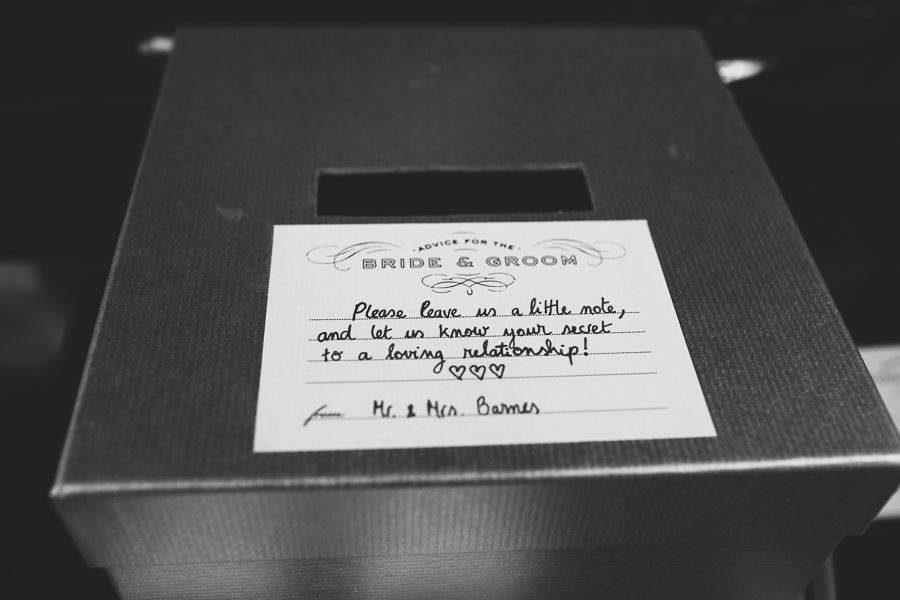 ·ADVICE FOR THE·
BRIDE & GROOM
Please leave us a little note,
and let us know your secret
to a loving relationship!
♡♡♡
from Mr. & Mrs. Barnes